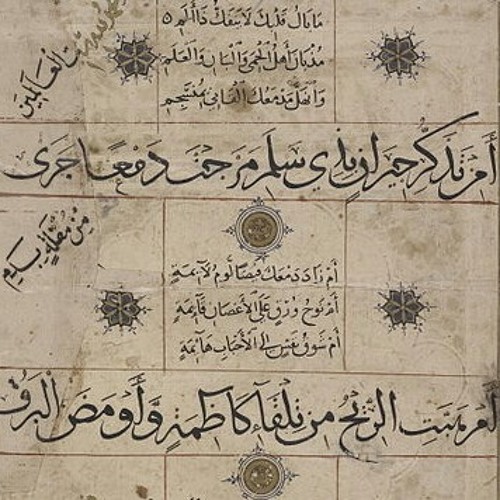 العالمين
مَا بَالُ قَلْبِكَ لَا يَنْفَكُّ ذَا أَلَمٍ
مُذْ بَانَ أَهْلُ الْحِمَى وَالْبَانِ وَالْعَلَمِ
وَانْهَلَّ مَدْمَعُكَ الْقَانِي بِمُنْسَجِمِ
أَمِنْ تَذَكُّرِ جِيرَانٍ بِذِي سَلَمِ مَزَجْتَ دَمْعًا جَرَى
مِنْ مُقْلَةٍ بِدَمِ
أَمْ زَادَ دَمْعَكَ فَيْضًا لَوْمُ لَايِمَةٍ
أَمْ نَوْحُ وُرْقٍ عَلَى الْأَغْصَانِ قَايِمَةٍ
أَمْ شَوْقُ نَفْسٍ إِلَى الْأَحْبَابِ هَايِمَةٍ
أَمْ هَبَّتِ الرِّيحُ مِنْ تِلْقَاءِ كَاظِمَةٍ وَأَوْمَضَ الْبَرْقُ